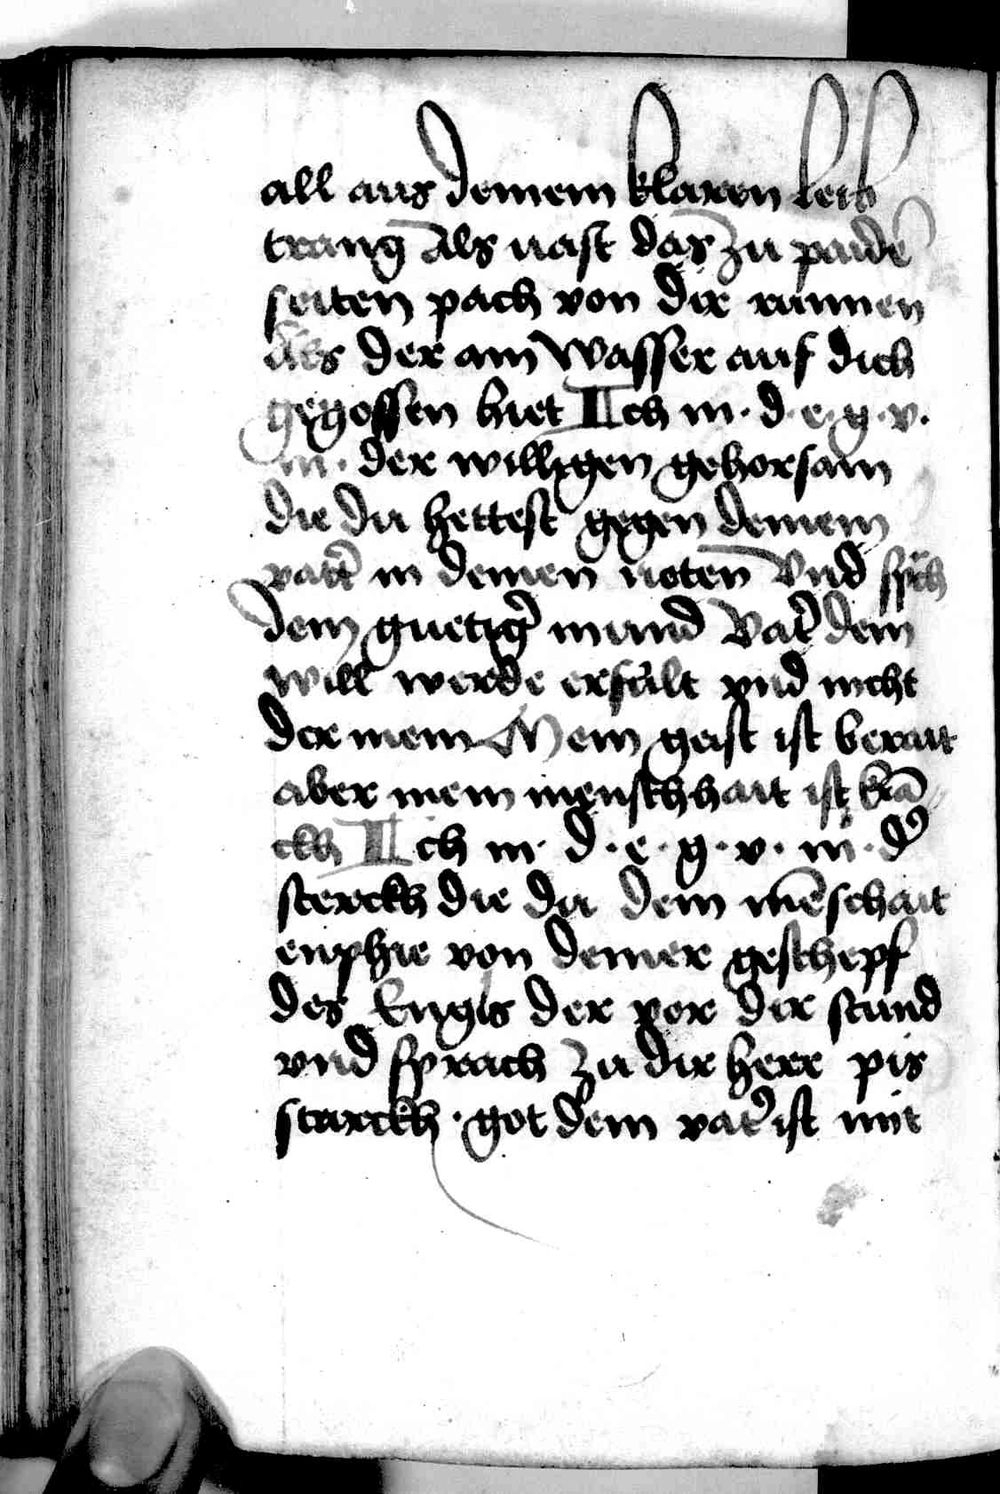 all aus deinem klaren leib
trang Als uast das zu paidē
seiten pach von dir runnen
als der ain wasser auf dich
gegossen hiet Ich m · d · e · g · v ·
m · der willigen gehorsam
die du hettest gegen deinem
vatt̄ in deinen noten vnd spͤch
dein guetigʾ mund Vatʾ dein
will werde erfult vnd nicht
der mein Mein geist ist berait
aber mein menschhait ist krā
ckh Ich m · d · e · g · v · m · dʾ
sterckh die du dein mēschait
enphie von deiner geschepf
des Engls der vor dir stund
vnd sprach zu dir herr pis
starckh · got dein vatʾ ist mit